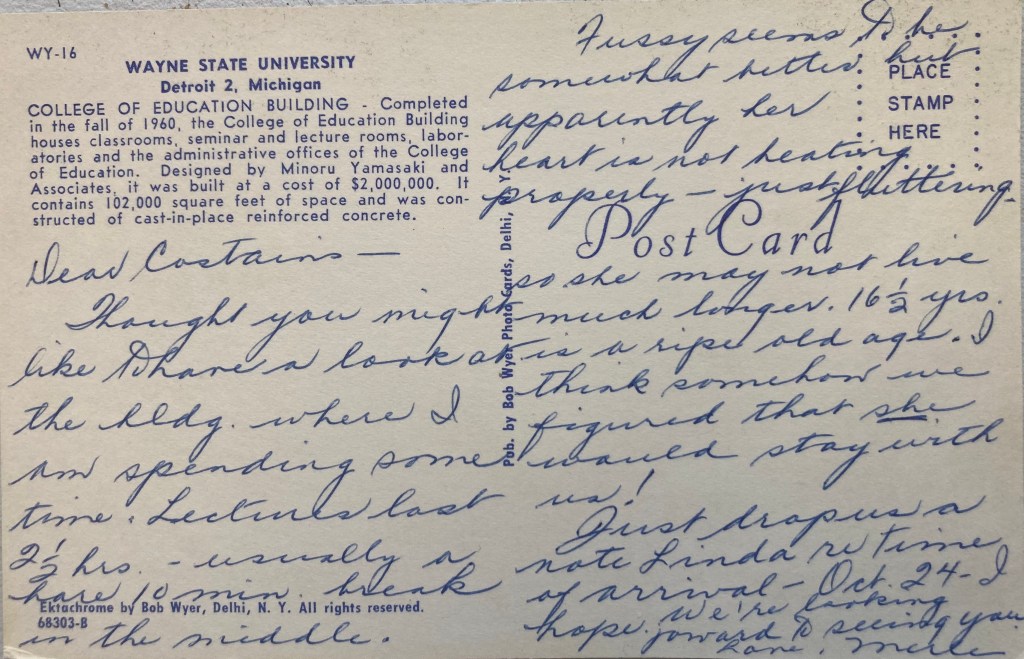 WY-16
WAYNE STATE UNIVERSITY
Detroit 2, Michigan
COLLEGE OF EDUCATION BUILDING - Completed
in the fall of 1960, the College of Education Building
houses classrooms, seminar and lecture rooms, labor-
atories and the administrative offices of the College
of Education. Designed by Minoru Yamasaki and
Associates, it was built at a cost of $2,000,000. It
contains 102,000 square feet of space and was con-
structed of cast-in-place reinforced concrete.
Dear Costains —
Thought you might
like to have a look at
the bldg. where I
am spending some
time. Lectures last
2 1/2 hrs. - usually a
have 10 min. break
in the middle.
Ektachrome by Bob Wyer, Delhi, N. Y. All rights reserved.
68303-B
Pub. by Bob Wyer Photo Cards, Delhi, N. Y.
PLACE
STAMP
HERE
Post Card
Fussy seems to be
somewhat better but
apparently her
heart is not beating
properly — just fluttering -
so she may not live
much longer. 16 1/2 yrs.
is a ripe old age. I
think somehow we
figured that she
would stay with
us!
Just drop us a
note Linda re time
of arrival - Oct. 24 - I
hope. We're looking
forward to seeing you.
Love, Merle